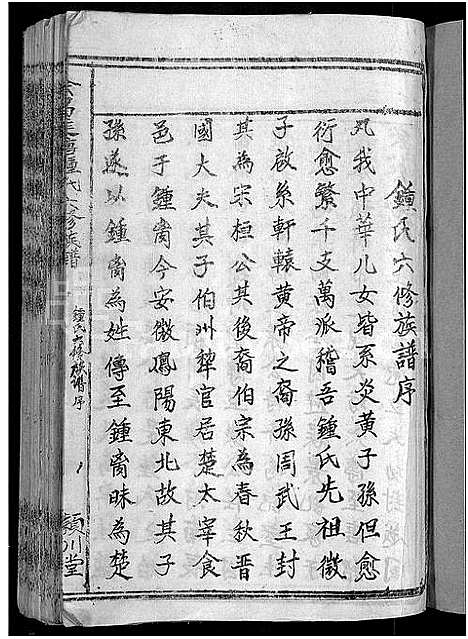 鍾氏六修族譜序
凡我中華儿女皆系炎黄子孫但愈
衍愈繁千支萬派稽吾鍾氏先祖微
子啟系軒轅黄帝之裔孫周武王封
其為宋桓公其後裔伯宗為春秋晋
國大夫其子伯州犂官居楚太宰食
邑于鍾離今安徽鳳陽東北故其子
孫遂以鍾離為姓傳至鍾離昧為楚
氏六修族譜
鍾氏六修族譜序
1
穎川堂